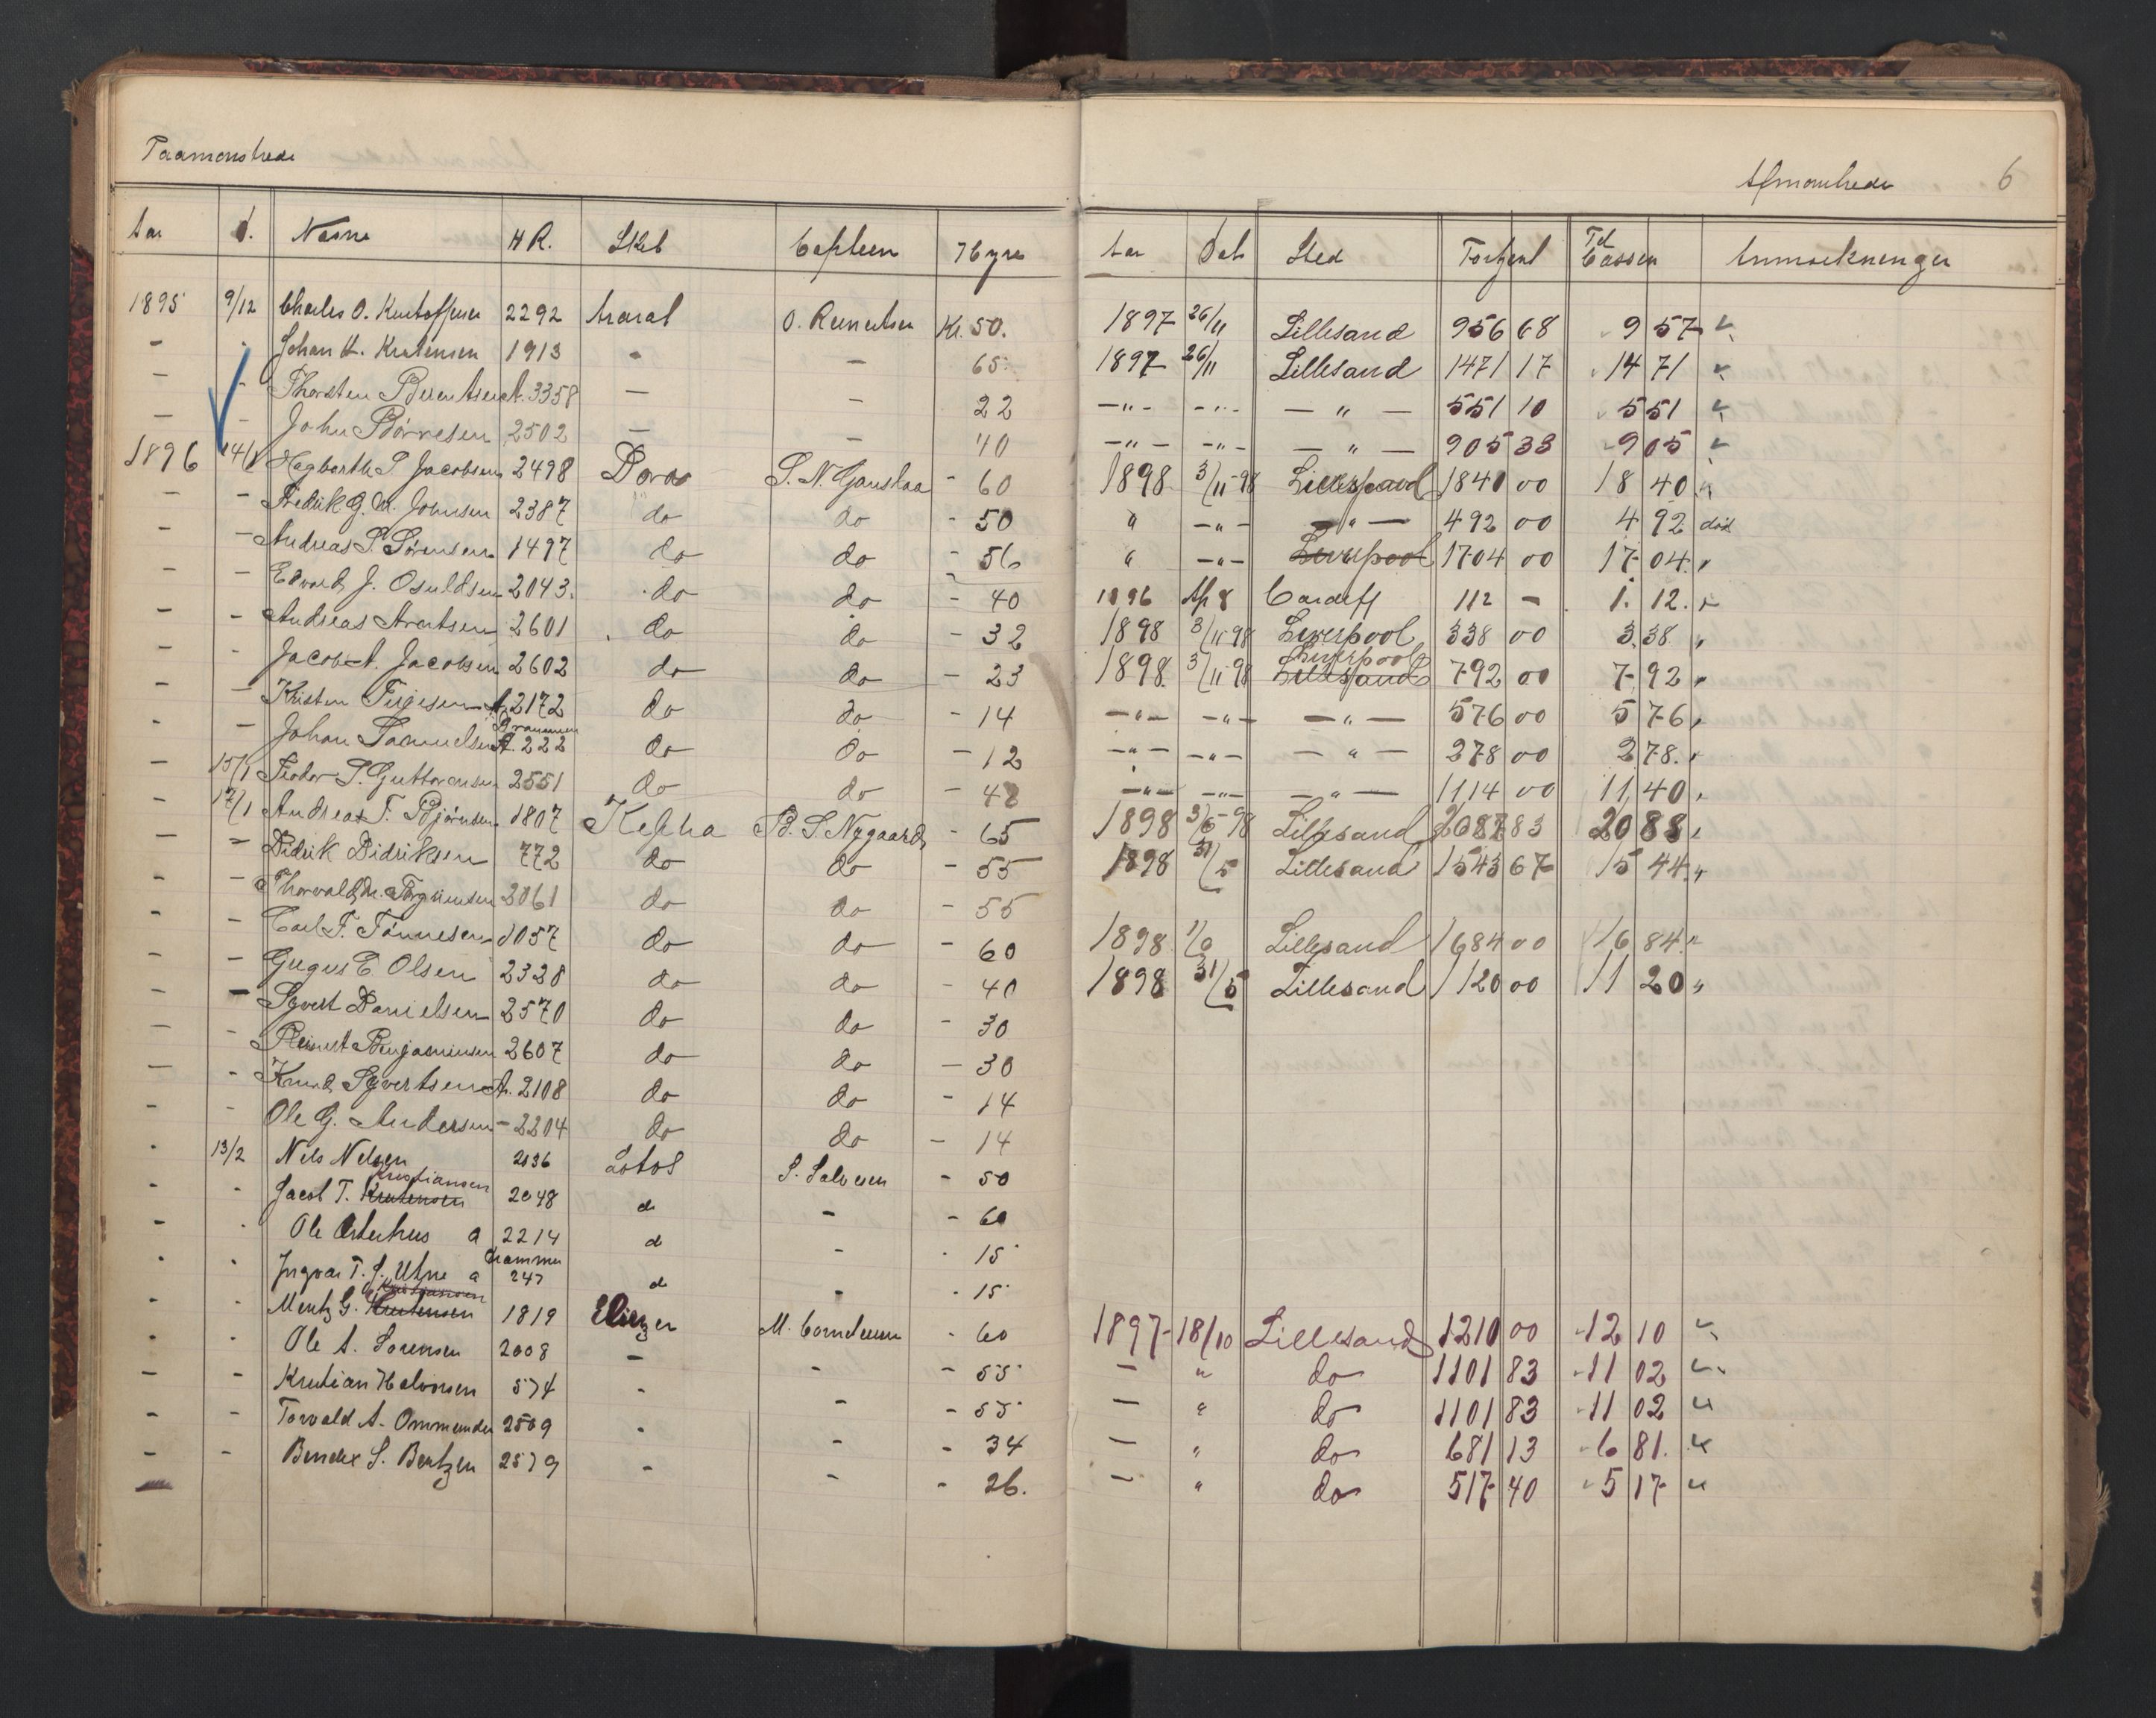 Paamønstrede
Afmønstrede 6
Aar d. Navne H R. Skib Captein Hyre Aar Dat Sted Fortjent Td Cassen Anmærkninger
1895 9/12 Charles O. Kristoffersen 2292 Ararat O. Reinertsen Kr. 50. 1897 26/11 Lillesand 956 68 957 "
- - Johan K. Kristensen 1913 - - 65 1897 26/11 Lillesand 1471 17 1471 "
- - Thorsten Berentsen A. 3358 - - 22 -"- -"- -"- 551 10 551 "
- - John Børresen 2502 - - 40 -"- -"- -"- 905 33 905 "
1896 14/1 Hagbarth S. Jacobsen 2498 Dora S. N. Gauslaa - 60 1898 3/11-98 1840 00 1840 "
- - Fredrik G. M. Johnsen 2387 do do - 50 " -"- -"- 492 00 492 død
- - Andreas S. Sørensen 1497 do do - 56 " -"- Liverpool 1704 00 1704. "
- - Edvard J. Osuldsen 2043. do do - 40 1896 Ap 8 Cardiff 112 - 112. "
- - Andreas Arntsen 2601 do do - 32 1898 3/11-98 Liverpool 338 00 338 "
- - Jacob A. Jacobsen 2602 do do - 23 1898 3/11-98 Liverpool Lillesand 792 00 792 "
- - Kristen Terjesen A. 2172 do do - 14 -"- -"- -"- 576 00 576 "
- - Johan Samuelsen Drammen A. 222 do do - 12 -"- -"- -"- 278 00 278. "
- 15/1 Feodor S. Guttormsen 2551 do do - 48 -"- -"- -"- 1114 00 1140 "
- 17/1 Andreas F. Bjørnsen 1807 Kepha B. S. Nygaard - 65 1898 3/5-98 Lillesand 2087 83 2088 "
- - Didrik Didriksen 772 do do - 55 1898 31/5 Lillesand 1543 67 1544. "
- - Thorvald M. Torgersen 2061 do do - 55
- - Carl F. Tønnesen 1057 do do - 60 1898 1/6 Lillesand 1684 00 1684. "
- - Gregus E. Olsen 2328 do do - 40 1898 31/5 Lillesand 1120 00 1120 "
- - Syvert Danielsen 2570 do do - 30
- - Reinert Benjaminsen 2607 do do - 30
- - Knud Syvertsen A. 2108 do do - 14
- - Ole G. Andersen - 2204 do do - 14
- 13/2 Nils Nelsen 2136 Lotos S. Salvesen - 50
- - Jacob T. Kristensen Kristiansen 2048 d - - 60
- - Ole Osterhus a 2214 d - - 15
- - Ingvar T. J. Utne a Drammen 247 d - - 15
- - Mentz G. Kristensen Kristiansen 1819 Eliezer M. Corneliussen - 60 1897 18/10 Lillesand 1210 00 1210 "
- - Ole A. Sørensen 2008 - - - 55 - " do 1101 83 1102 "
- - Kristian Halvorsen 574 - - - 55 - " do 1101 83 1102 "
- - Torvald A. Ommundsen 2509 - - - 34 - " do 681 13 681. "
- - Bendix S. Bentzen 2579 - - - 26. - " do 517 40 517 "